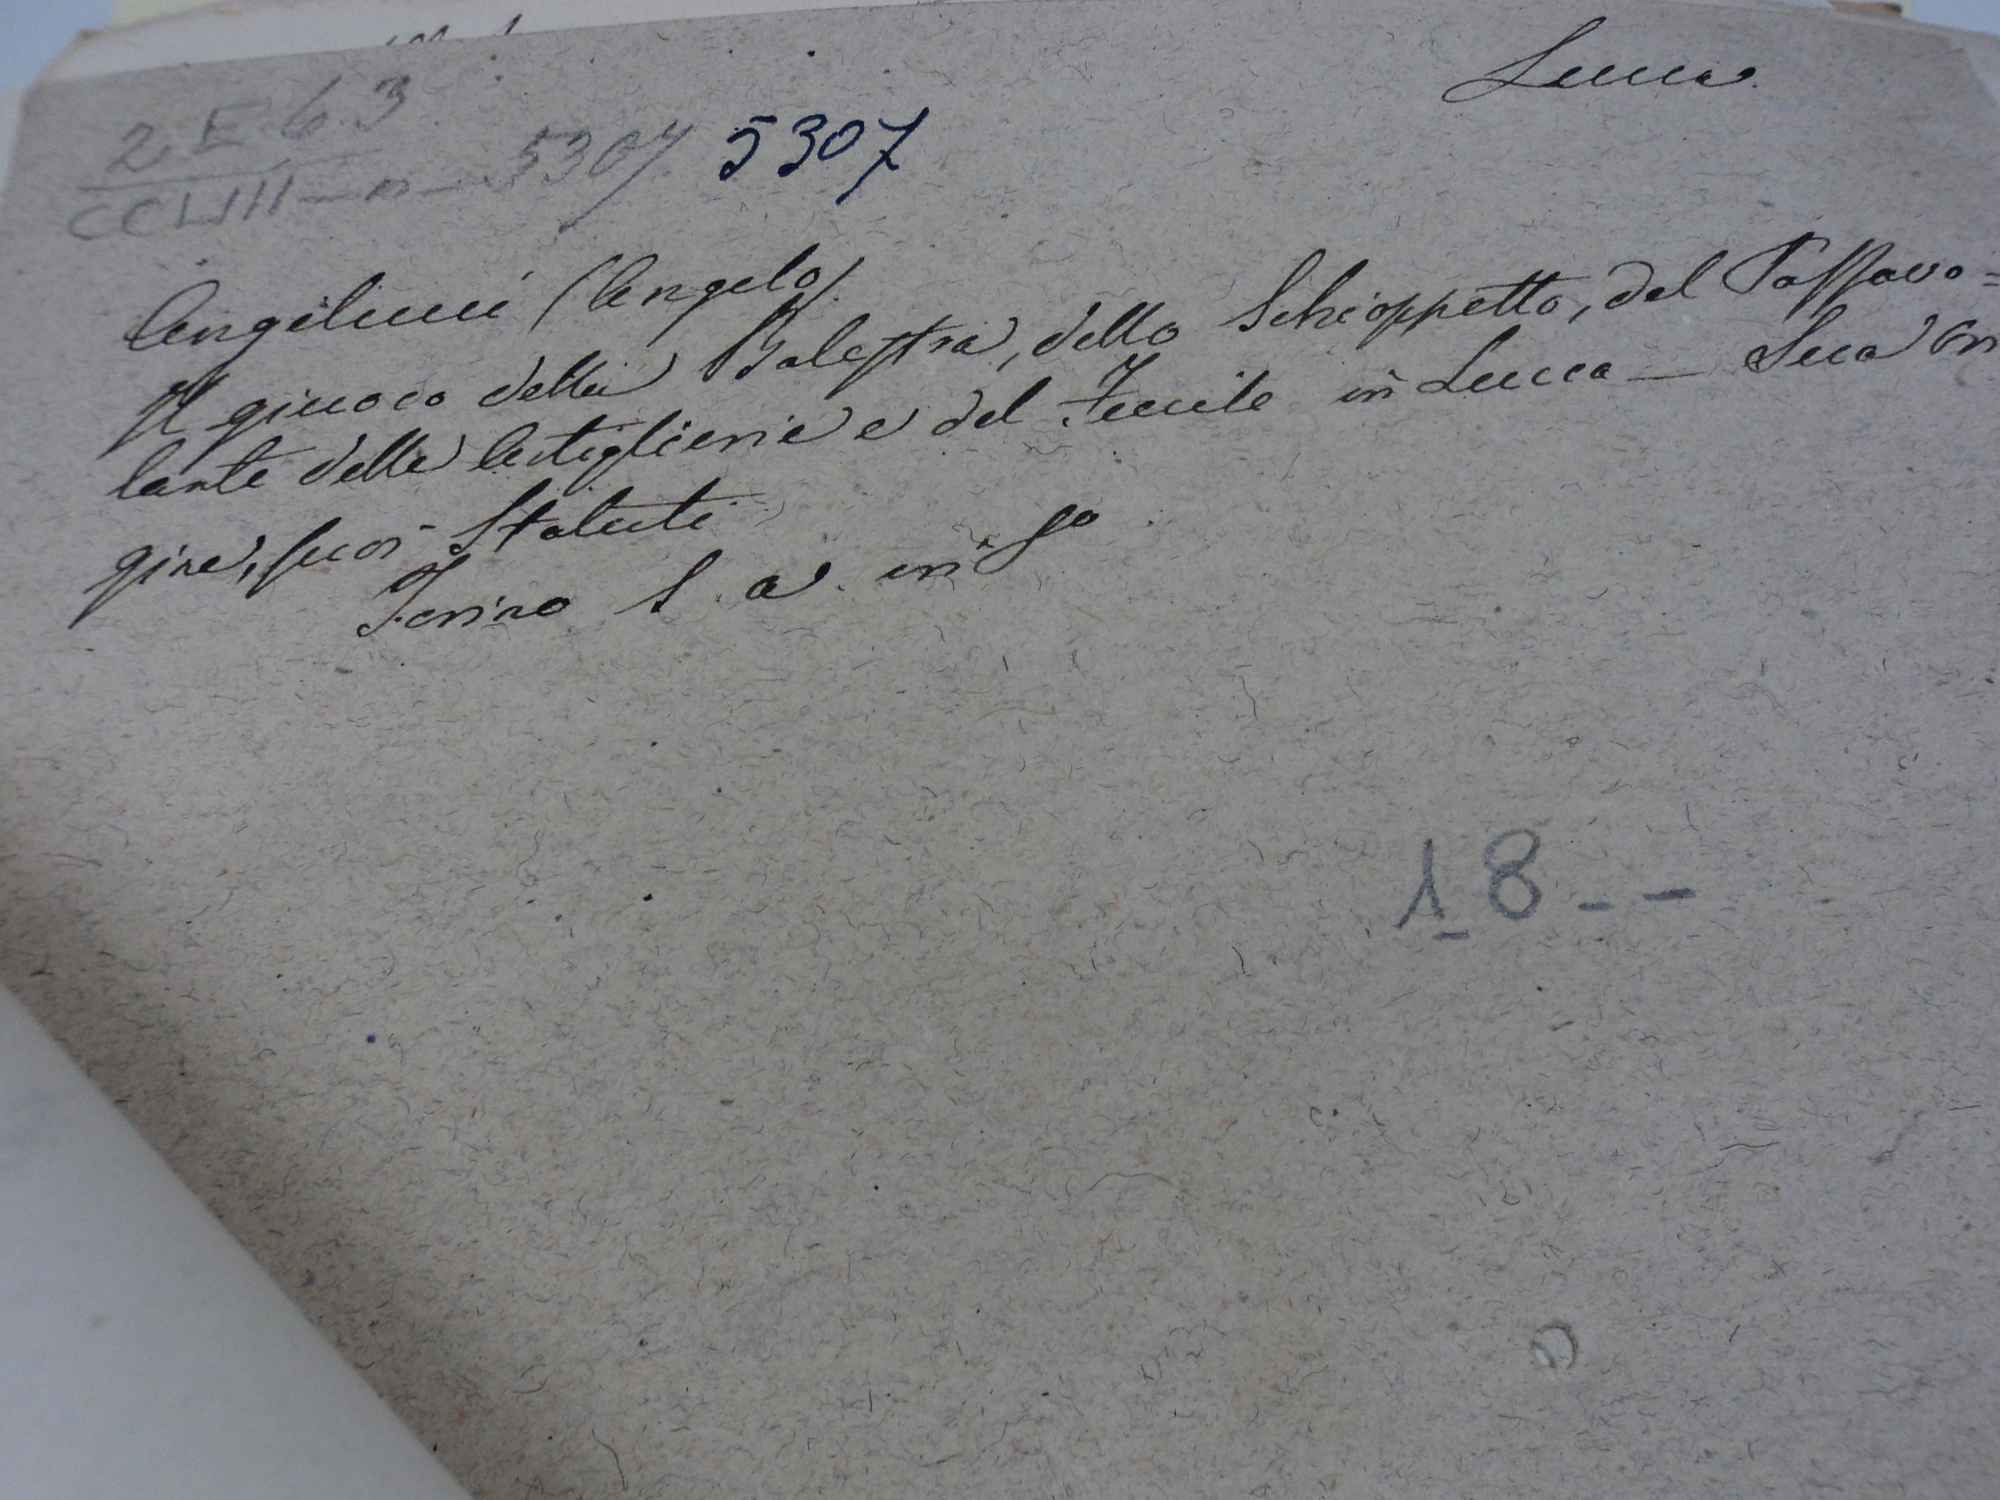 Lucca
2 E 6.3
CCLVIII - n - 5307. 5307
Angelucci (Angelo)
Il giuoco della Balestra, dello Schioppetto, del Passavo=
lante delle Artiglierie e del Fucile in Lucca — Sua Ori
gine, suoi Statuti
Torino S. a. in 8o
18 - -